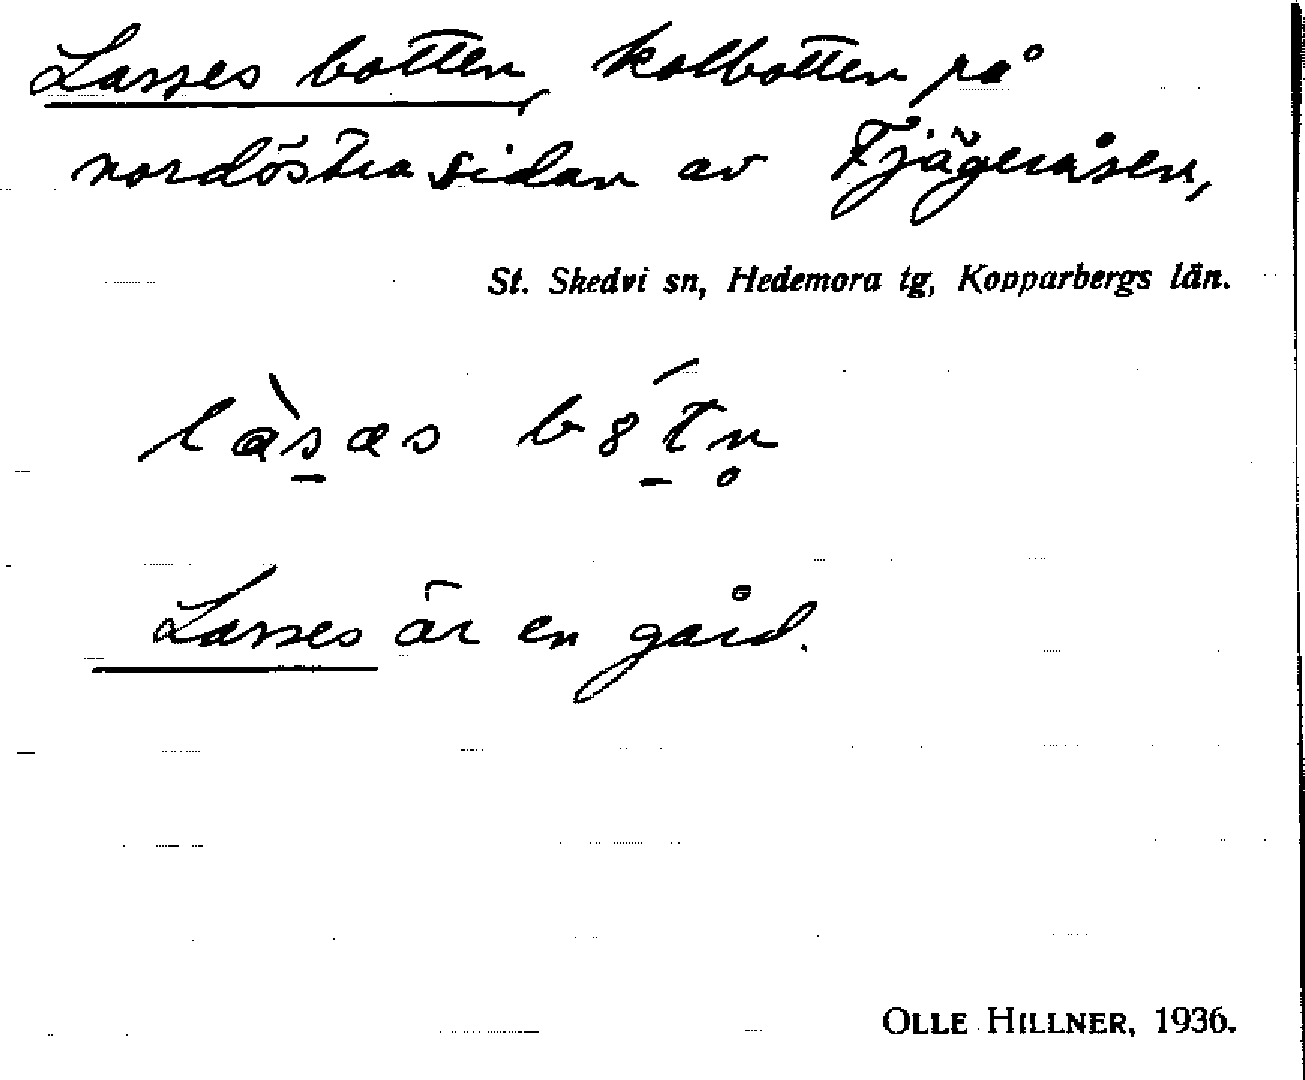 Lasses botten, kolbotten på
nordöstra sidan av Fjägeråsen,
St. Skedvi sn, Hedemora tg, Kopparbergs län.
là̠sas b8́t̠n̥
Lasses är en gård.
OLLE HILLNER, 1936.